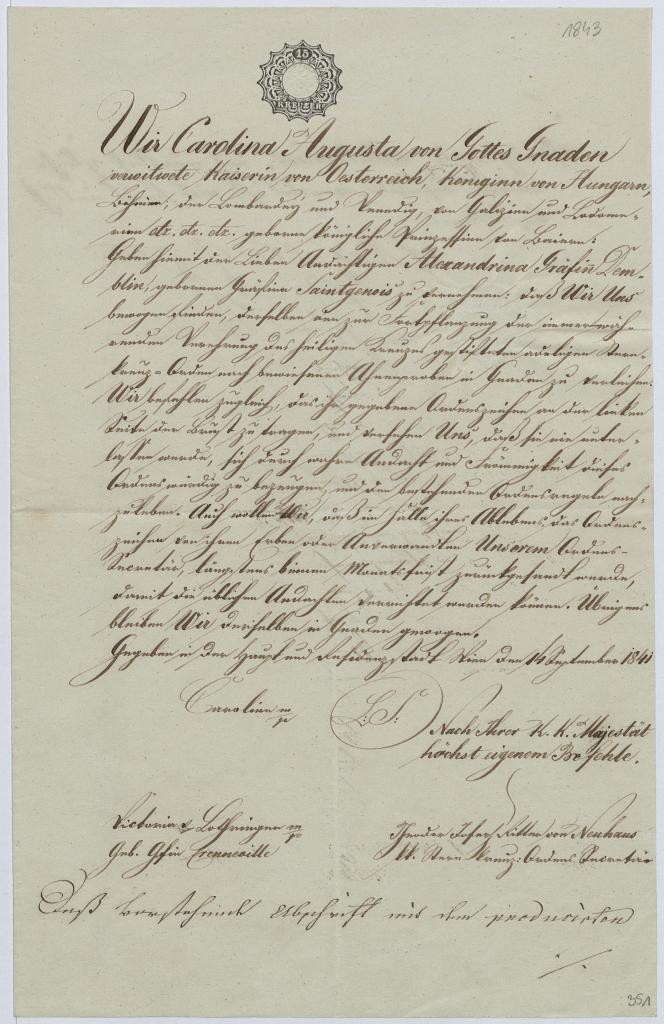 1843
15
KREUZER
Wir Carolina Augusta von Gottes Gnaden
verwitwete Kaiserin von Oesterreich, Königinn von Hungarn,
Böheim, der Lombardey und Venedig, von Galizien und Lodome-
rien etz. etz. etz. geborne königliche Prinzessinn von Baiern:
Geben hiemit der Lieben Andächtigen Alexandrina Gräfin Dem-
blin, gebornen Gräfinn Saintgenois zu vernehmen: daß Wir Uns
bewogen finden, derselben den zur Fortpflanzung der immerwäh-
renden Verehrung des heiligen Kreuzes gestifteten adeligen Stern-
kreuz-Orden nach bewiesenen Ahnenproben in Gnaden zu verleihen.
Wir befehlen zugleich, das ihr gegebene Ordenszeichen an der linken
Seite der Brust zu tragen, und versehen Uns, daß sie nie unter-
lassen werde, sich durch wahre Andacht und Frömmigkeit dieses
Ordens würdig zu bezeugen, und den bestehenden Ordensregeln nach-
zuleben. Auch wollen Wir, daß im Falle ihres Ablebens, das Ordens-
zeichen von ihren Erben oder Anverwandten Unserem Ordens-
Secretär, längstens binnen Monatsfrist zurückgesandt werde,
damit die üblichen Andachten verrichtet werden können. Übrigens
bleiben Wir derselben in Gnaden gewogen.
Gegeben in der Haupt und Residenzstadt Wien den 14 September 1841
Caroline mp
L: S:
Nach Ihrer K. K. Majestät
höchst eigenem Befehle.
Victoria Lothringen mp
Geb. Gfin Crenneville
Theodor Josef Ritter von Neuhaus
Stern Kreuz: Ordens Secretär
Daß vorstehende Abschrift mit dem producirten
./.
351